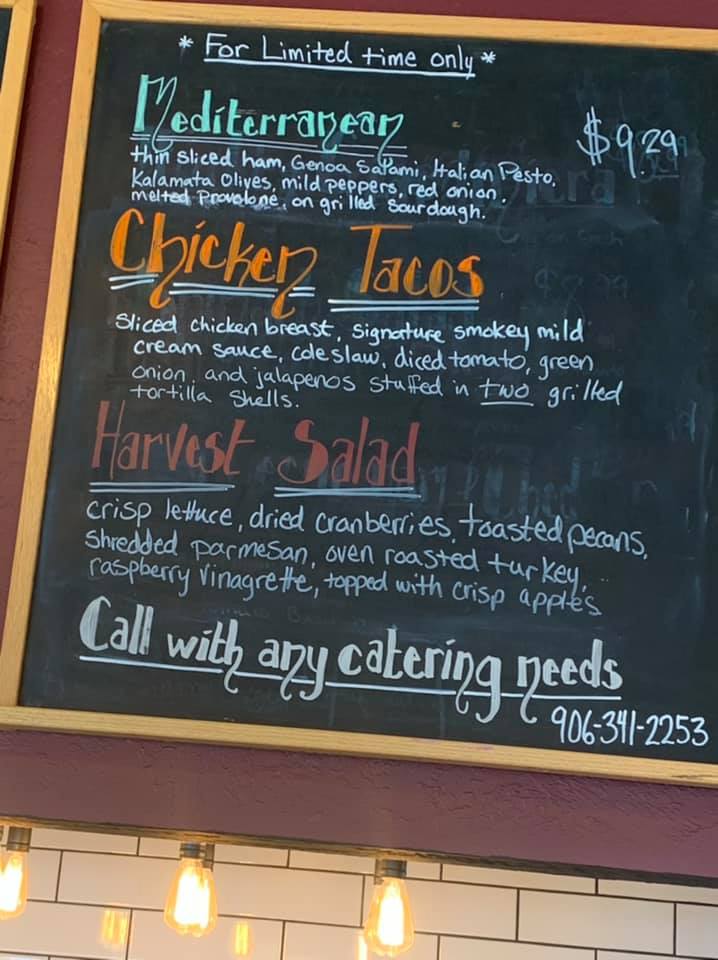 * For Limited time only *
Mediterranean $9.29
thin sliced ham, Genoa Salami, Italian Pesto,
Kalamata Olives, mild peppers, red onion,
melted Provolone, on grilled Sourdough.
Chicken Tacos
Sliced chicken breast, signature smokey mild
cream sauce, coleslaw, diced tomato, green
onion, and jalapenos stuffed in two grilled
tortilla shells.
Harvest Salad
crisp lettuce, dried cranberries, toasted pecans,
shredded parmesan, oven roasted turkey,
raspberry vinagrette, topped with crisp apples
Call with any catering needs
906-341-2253